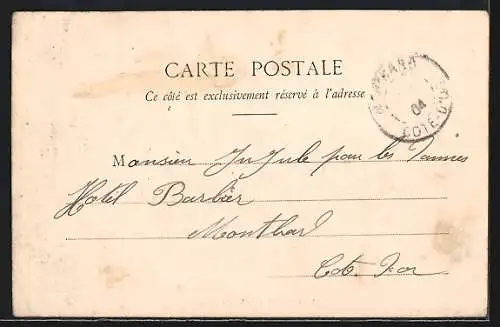 CARTE POSTALE
Ce côté est exclusivement réservé à l'adresse
04
COTE-D'OR
Monsieur pour les
Hotel Barbier
Montbard
Cote. D'or